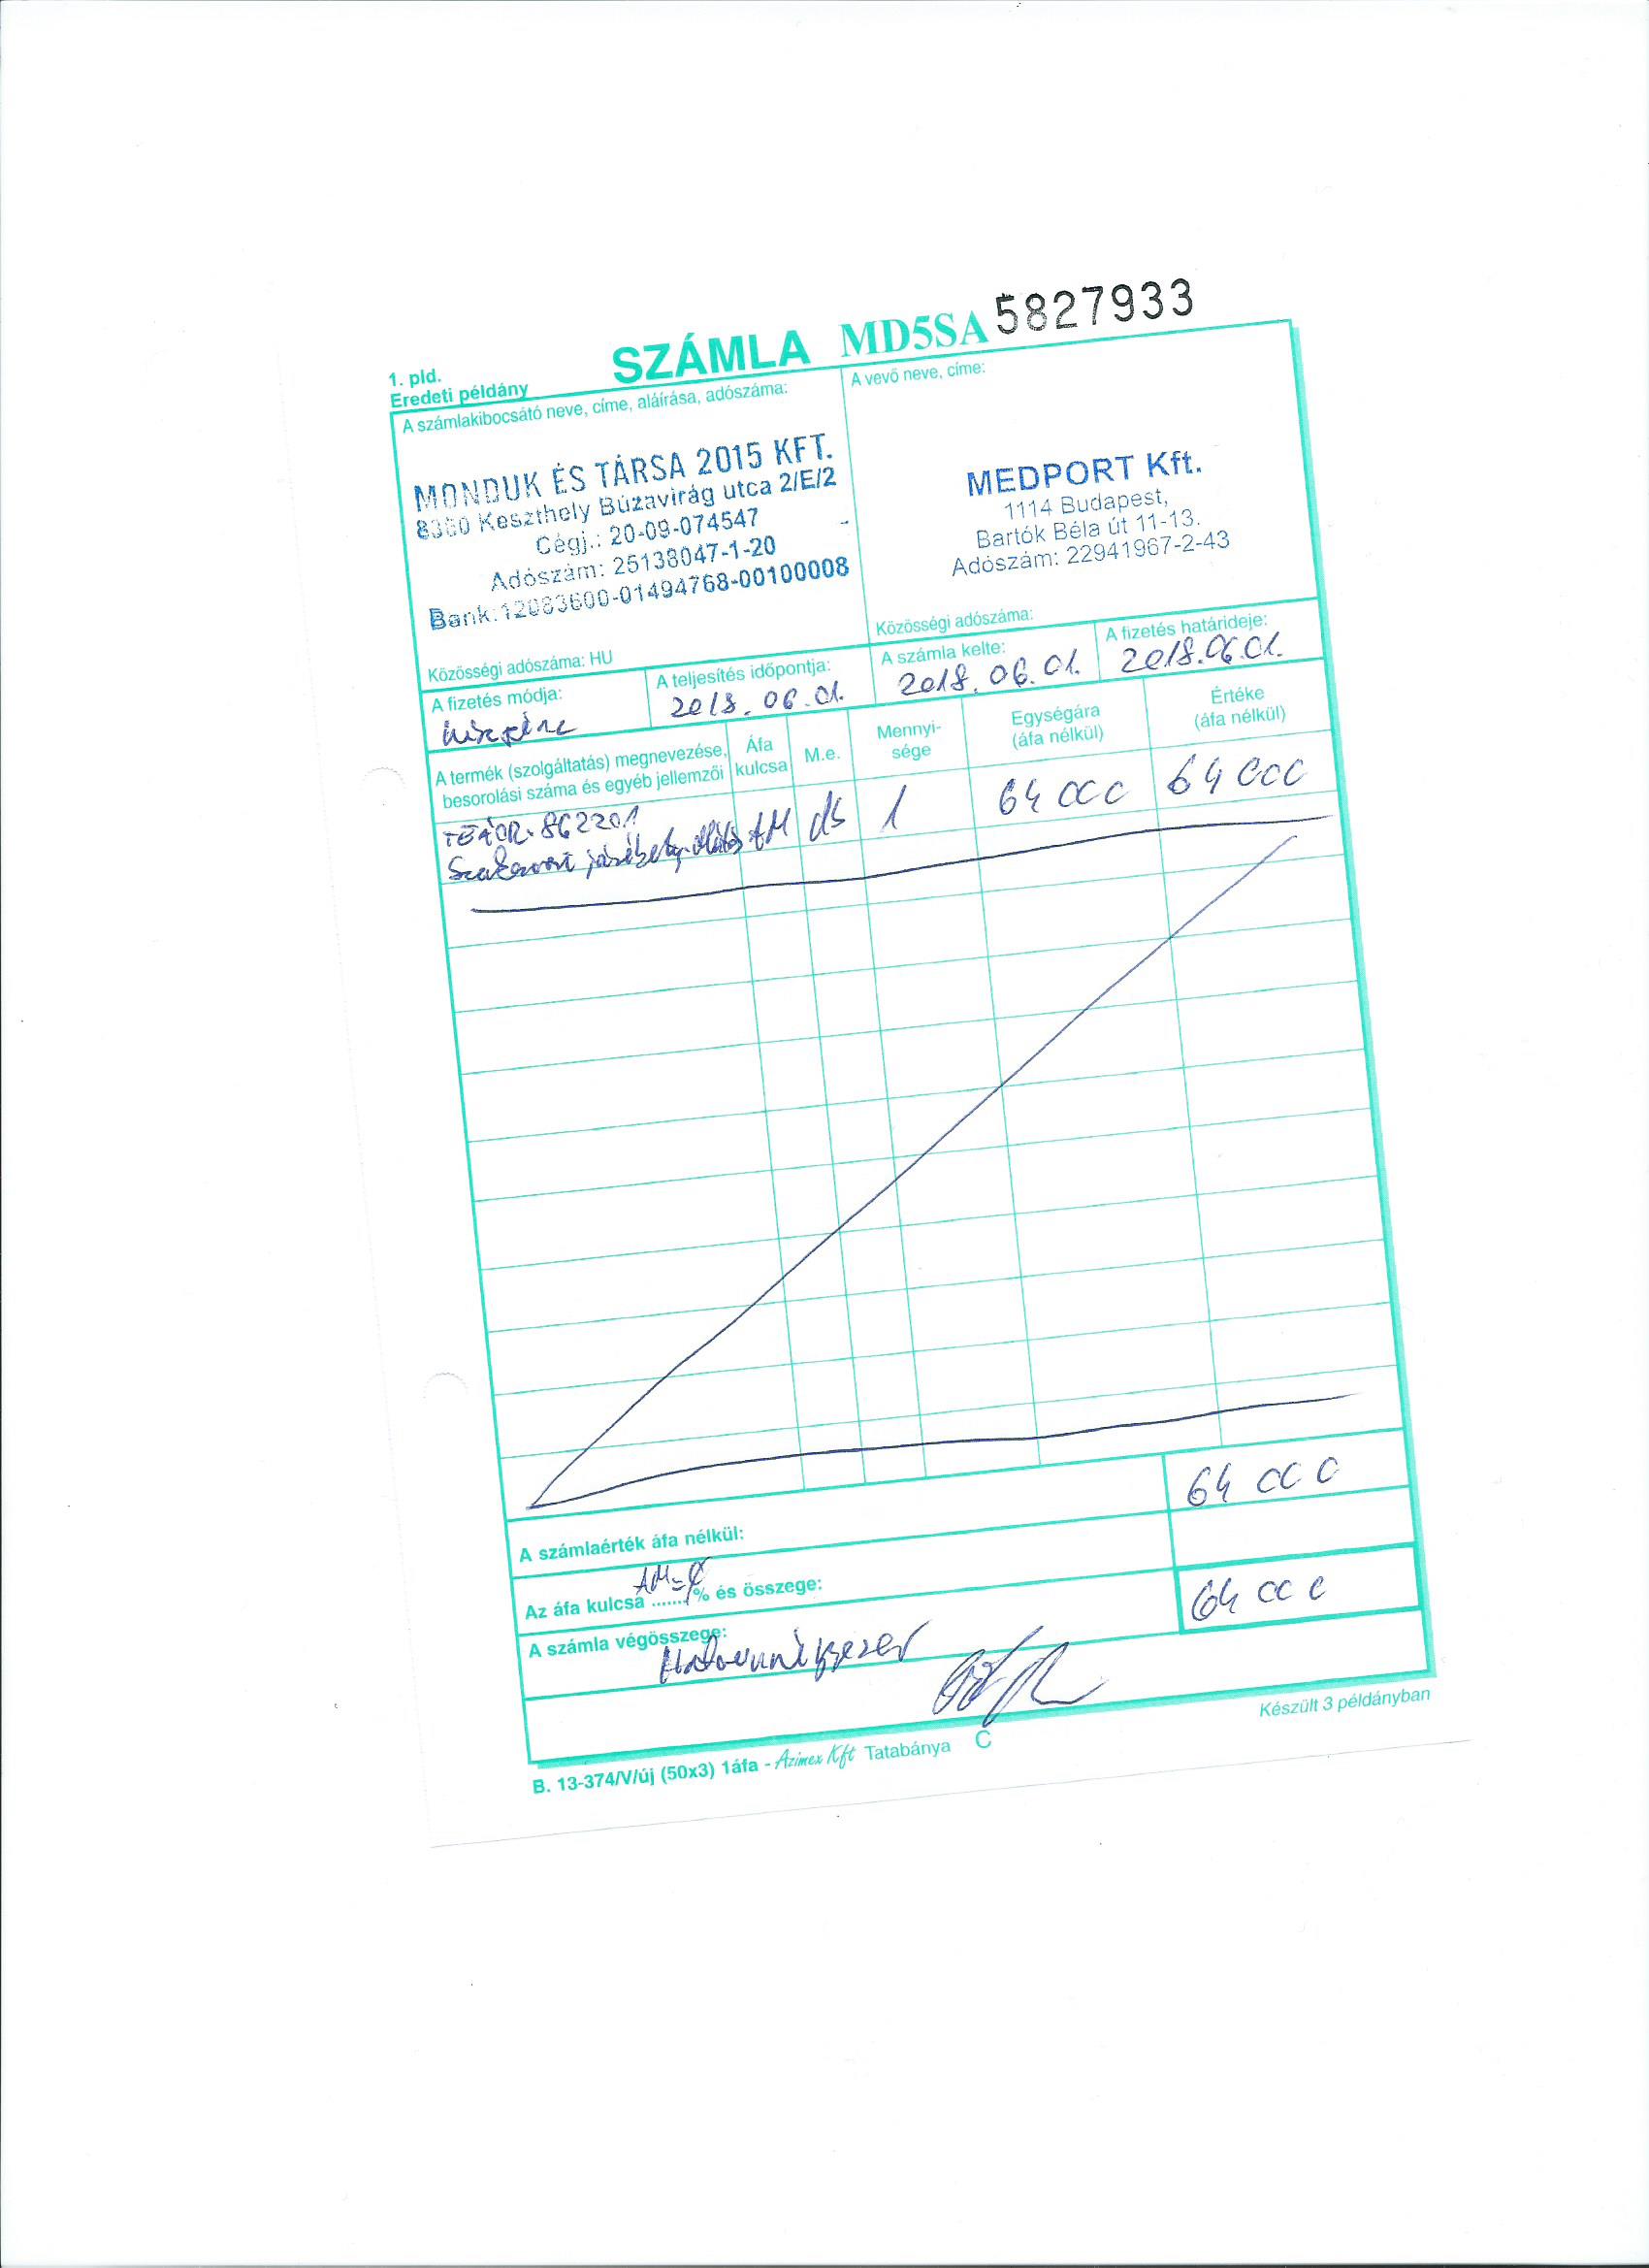 SZÁMLA MD5SA 5827933
1. pld.
Eredeti példány
A számlakibocsátó neve, címe, aláírása, adószáma:
MONDUK ÉS TÁRSA 2015 KFT.
8360 Keszthely Búzavirág utca 2/E/2
Cégj.: 20-09-074547
Adószám: 25138047-1-20
Bank:12083600-01494768-00100008
Közösségi adószáma: HU
A vevő neve, címe:
MEDPORT Kft.
1114 Budapest,
Bartók Béla út 11-13.
Adószám: 22941967-2-43
Közösségi adószáma:
A fizetés módja:
készpénz
A teljesítés időpontja:
2018. 06. 01.
A számla kelte:
2018. 06. 01.
A fizetés határideje:
2018. 06. 01.
A termék (szolgáltatás) megnevezése, besorolási száma és egyéb jellemzői
Áfa kulcsa
M.e.
Mennyi-sége
Egységára (áfa nélkül)
Értéke (áfa nélkül)
TEÁOR: 862201
Szakorvosi járóbeteg-ellátás AM db 1 64 000 64 000
A számlaérték áfa nélkül: 64 000
Az áfa kulcsa AM=0 % és összege:
A számla végösszege: 64 000
Készült 3 példányban
B. 13-374/V/új (50x3) 1áfa - Azimex Kft Tatabánya C